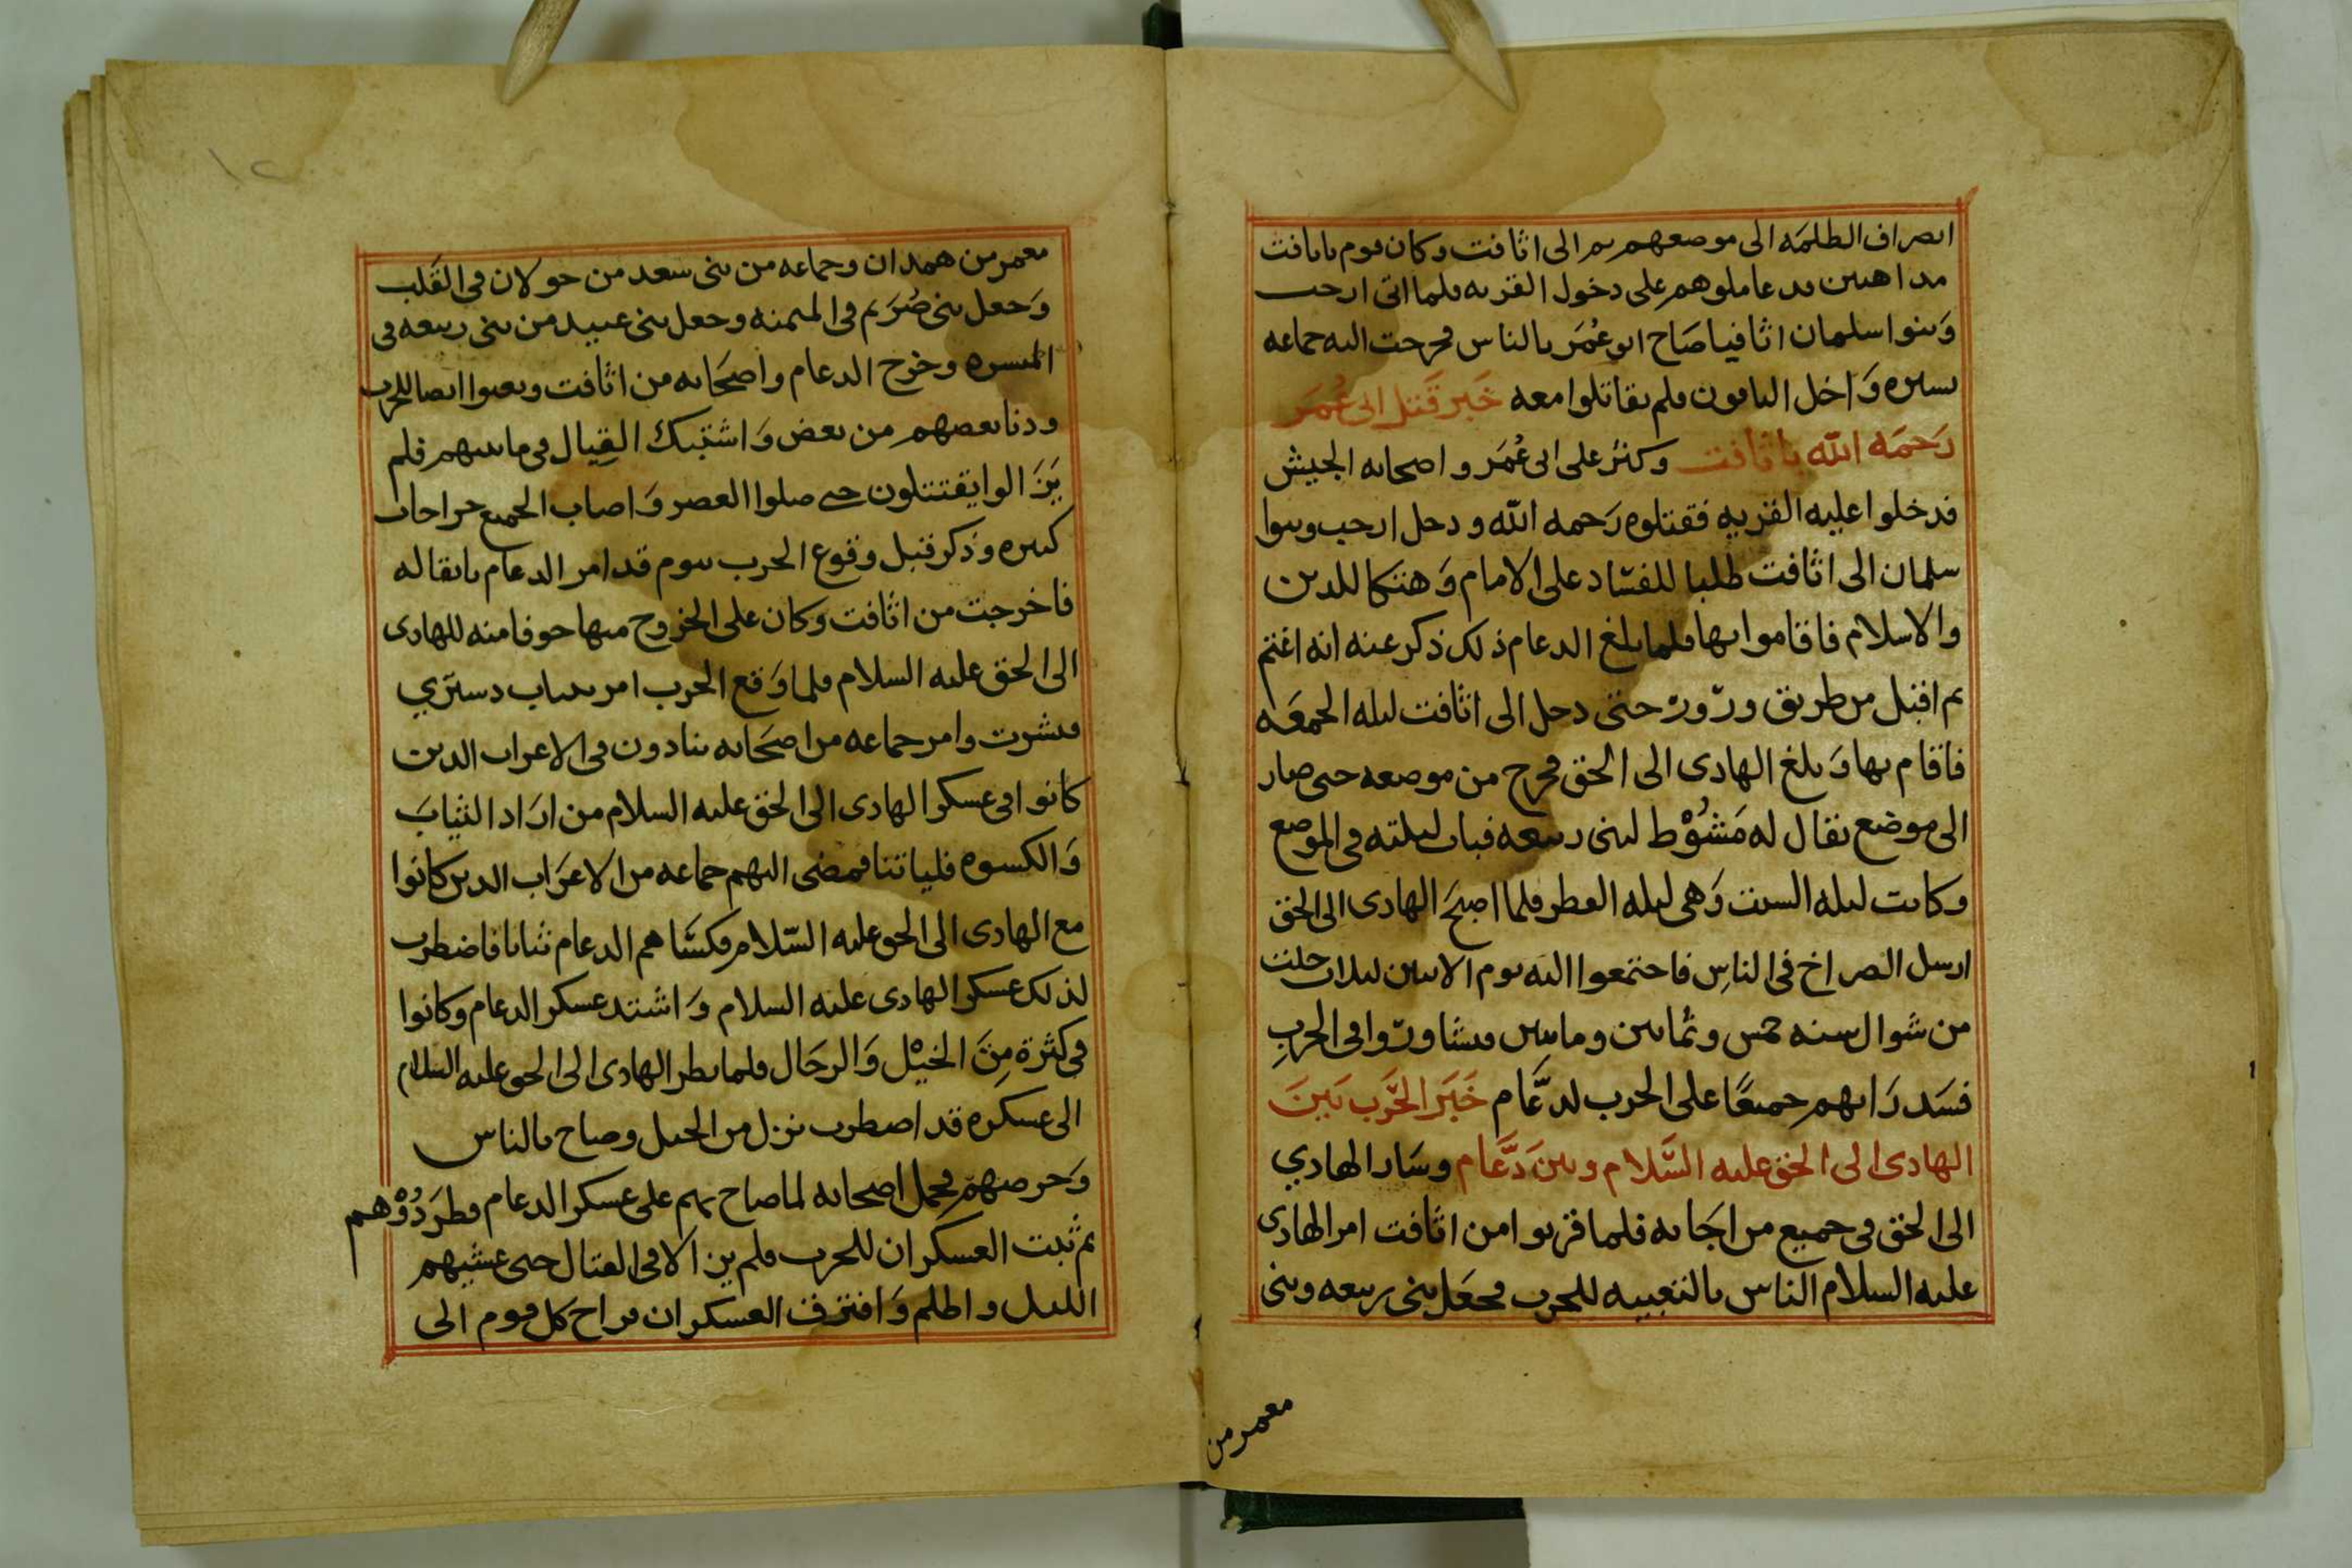 انصراف الظلمه الى موضعهم ثم الى اثافت وكان قوم باثافت
مداهنين قد عاملوهم على دخول القريه فلما اتى ارحب
وَبنوا سلمان اثافيا صَاح ابو عُمَر بالناس فخرجت اليه جماعه
يسيره وَاخل الباقون فلم يقاتلوا معه خَبر قَتل ابى عُمَر
رَحمَه الله باثافت وكثر على ابى عُمَر واصحابه الجيش
فدخلوا عليه القريه فقتلوه رَحمه الله ودخل ارحب وبنوا
سلمان الى اثافت طلبا للفسَاد على الامام وَهتكا للدين
والاسلام فاقاموا بها فلما بلغ الدعام ذلك ذكر عنه انه اغتم
ثم اقبل من طريق ورور حتى دخل الى اثافت ليله الجمعَه
فاقام بها وَبلغ الهادى الى الحق فخرج من موضعه حتى صار
الى موضع يقال له مَشُوْط لبنى ربيعه فبات ليلته فى الموضع
وكانت ليله السبت وَهى ليله الفطر فلما اصبَح الهادى الى الحق
ارسل الصراخ فى الناسِ فاجتمعوا اليه يوم الاثنين لثلاث خلت
من شوال سنه خمس وثمانين ومايتين فتشاوروا فى الحربِ
فسَدد رَايهم جميعًا على الحرب لدعَّام خَبَر الحَرب بَينَ
الهادى الى الحق عليه السَّلام وبين دَعَّام وسَار الهادي
الى الحق فى جميع من اجَابه فلما قربوا من اثافت امر الهادى
عليه السلام الناس بالتعبيه للحرب فجعَل بنى ربيعه وبنى
معمر من
معمر من همدان وجماعه من بنى سعد من خولان فى القَلب
وَجعل بنى صُرَيم فى الميمنه وجعل بنى عبيد من بنى ربيعه فى
الميسره وخرج الدعام واصحَابه من اثافت وتعبوا ايضا للحرب
ودنا بعضهم من بعض وَاشتبك القِتال فى ما بينهم فلم
يَزَالوا يقتتلون حتى صلوا العصر وَاصاب الجميع جراحات
كثيره وَذكر قبل وقوع الحرب بيوم قد امر الدعام باثقاله
فاخرجت من اثافت وكان على الخروج منها خوفا منه للهادى
الى الحق عليه السلام فلما وَقع الحرب امر بثياب دستري
فنشرت وامر جماعه من اصحَابه ينادون فى الاعراب الدين
كانوا فى عسكر الهادى الى الحق عليه السلام من ارَاد الثيابَ
وَالكسوه فلياتنا فمضى اليهم جماعه من الاعرَاب الدين كانوا
مع الهادى الى الحق عليه السّلام فكسَاهم الدعام ثيابا فاضطرب
لذلك عسكر الهادى عليه السلام وَاشتد عسكر الدعام وكانوا
فى كثرة مِنَ الخيْل وَالرجَال فلما نظر الهادى الى الحق عليه السلام
الى عسكره قد اضطرب نزل من الجبل وصاح بالناس
وَحرضهم فحمل اصحابه لما صاح بهم على عسكر الدعام فطرَدُوْهم
ثم ثبت العسكران للحرب فلم يزالا فى القتال حتى عشيهم
الليل واظلم وَافترق العسكران فراح كل قوم الى